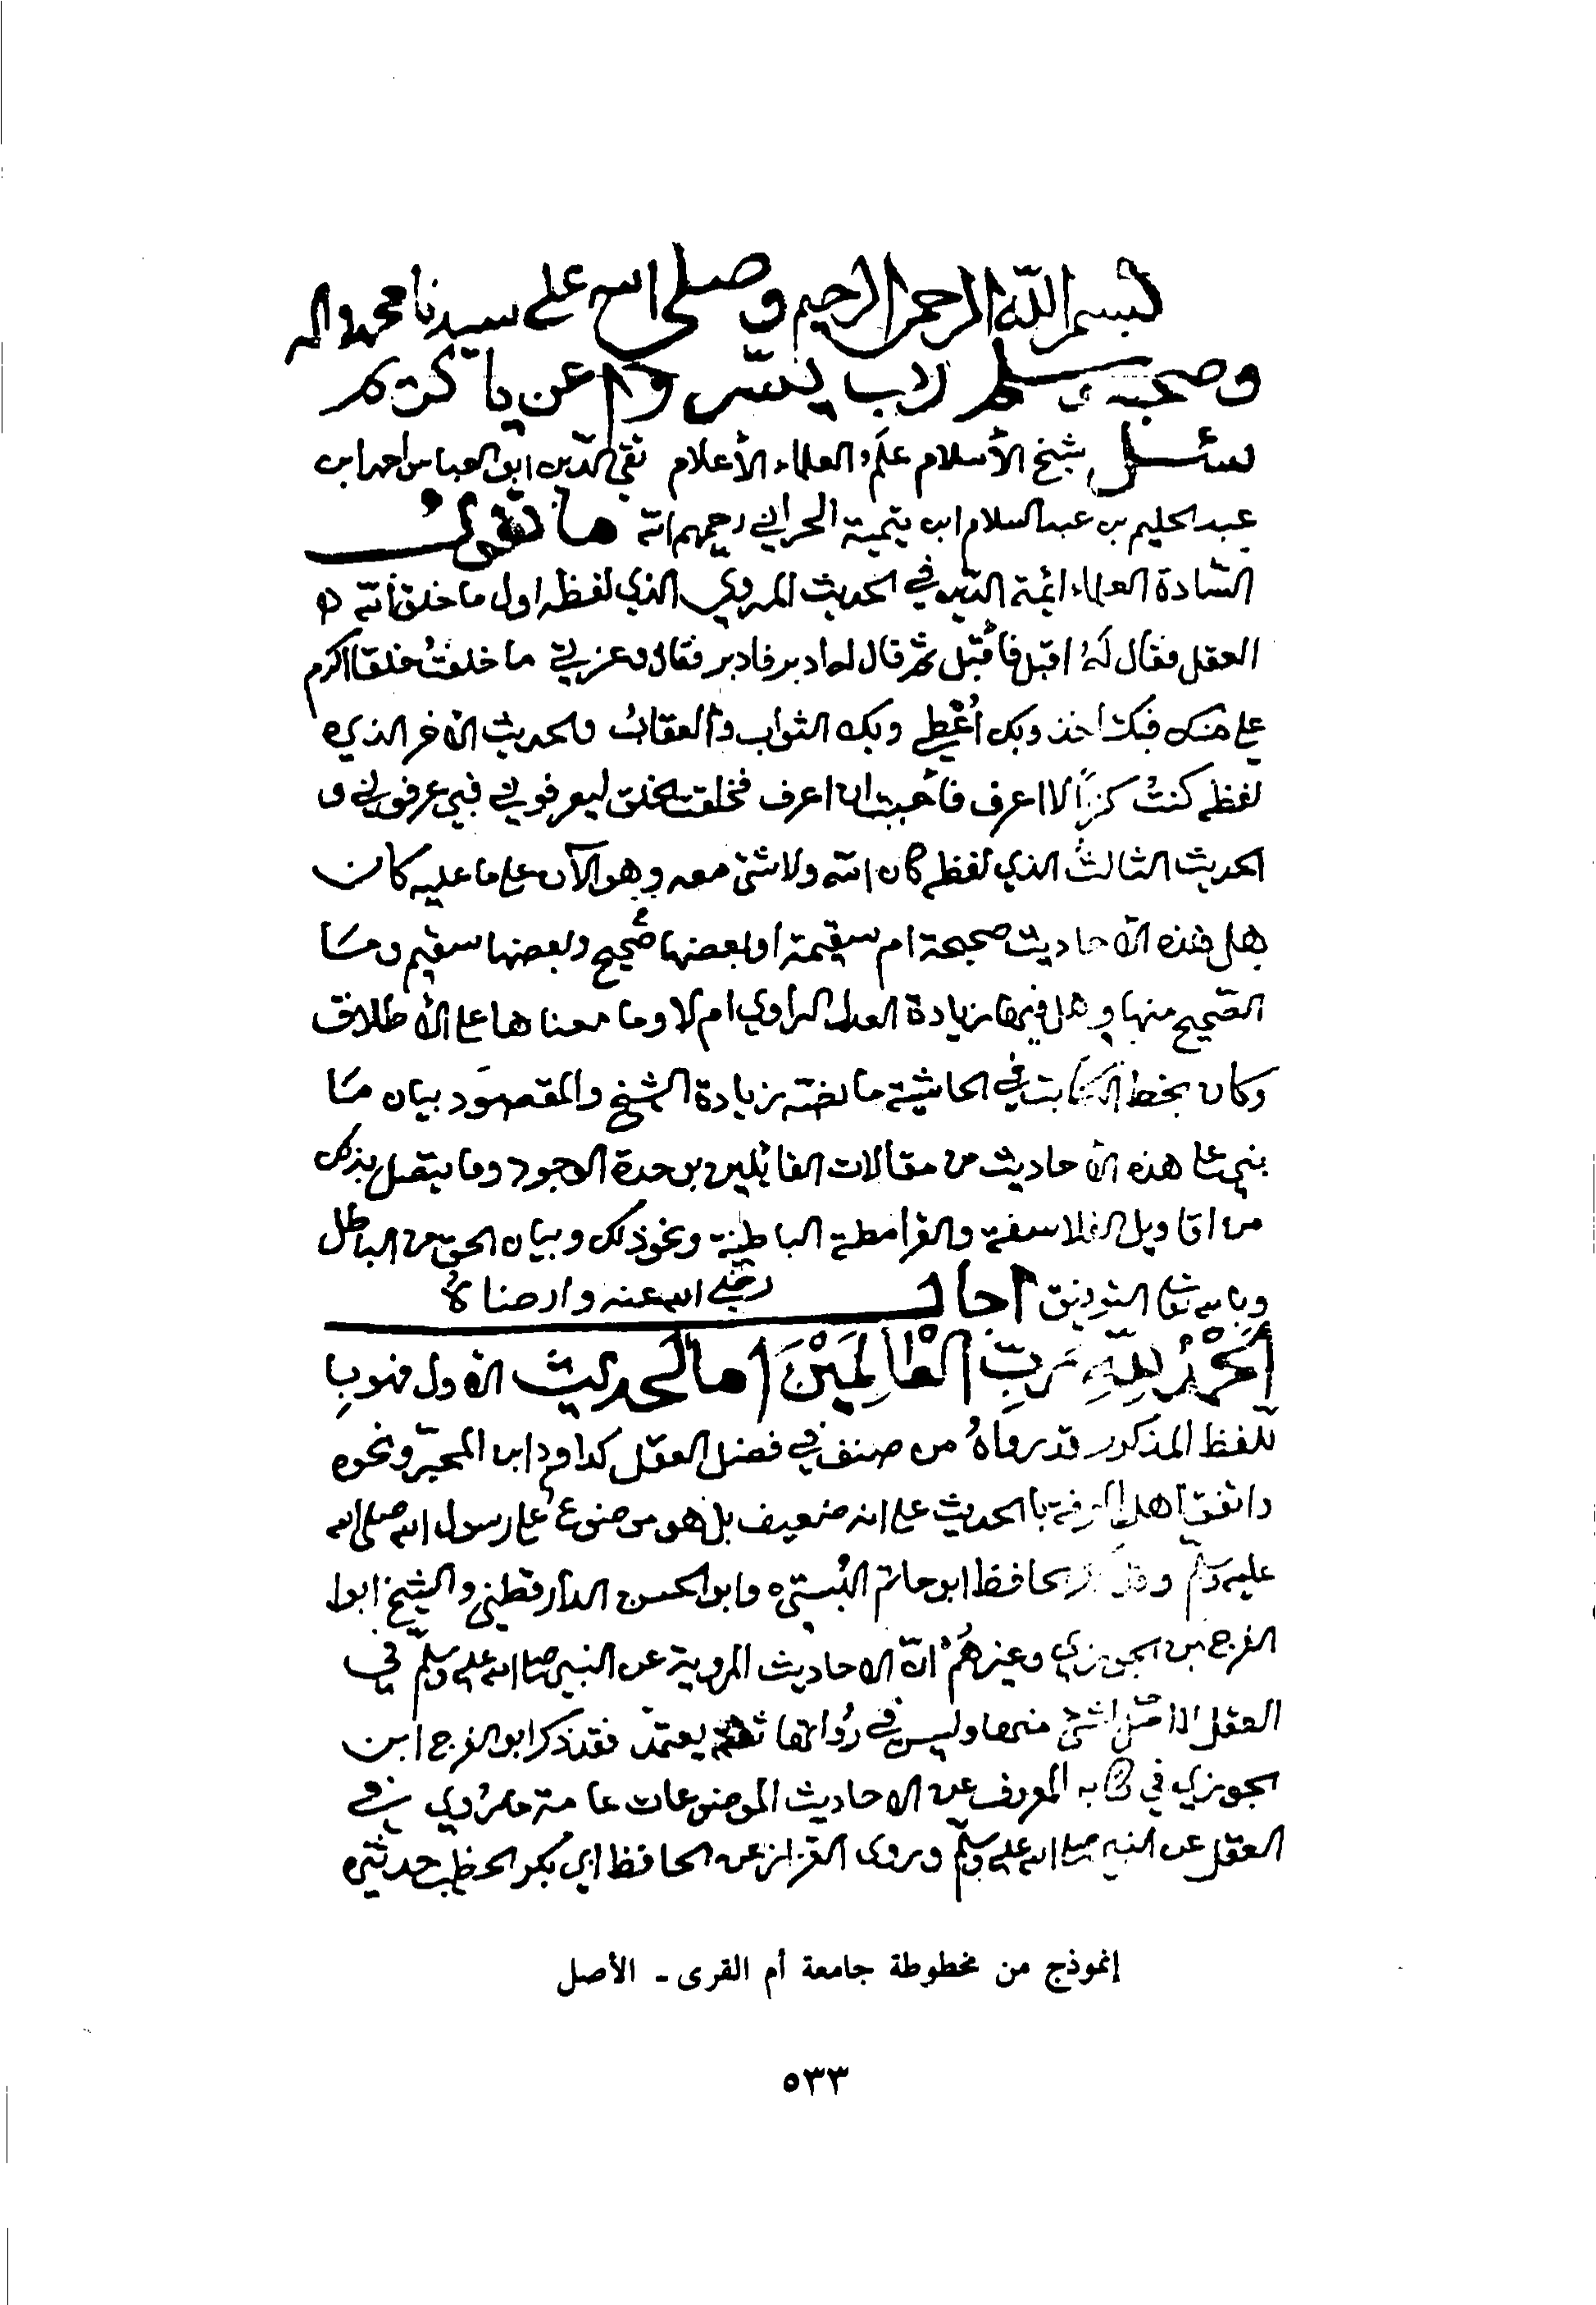 بسم الله الرحمن الرحيم وصلى الله على سيدنا محمد واله
وصحبه وسلم رب يسر واعن يا كريم
سئل شيخ الأسلام علم العلماء الأعلام تقي الدين ابو العباس احمد ابن
عبد الحليم بن عبد السلام ابن تيمية الحراني رحمهم الله ما تقول
السادة العلماء ائمة الدين في الحديث المروي الذي لفظه اول ما خلق الله
العقل فقال له اقبل فأقبل ثم قال له ادبر فادبر فقال وعزتي ما خلقت خلقا اكرم
علي منك فبك أخذ وبك أعطي وبك الثواب والعقاب والحديث الأخر الذي
لفظه كنت كنزاً لا اعرف فأحببت ان اعرف فخلقت الخلق ليعرفوني فبي عرفوني و
الحديث الثالث الذي لفظه كان الله ولا شئ معه وهو الآن على ما عليه كان
هل هذه الأحاديث صحيحة ام سقيمة او بعضها صحيح وبعضها سقيم وما
الصحيح منها وهل فيها زيادة العدل الراوي ام لا وما معناها على الأطلاق
وكان بخط الكاتب في الحاشية ما نصه زيادة الشيخ والمقصود بيان ما
بني على هذه الأحاديث من مقالات القائلين بوحدة الوجود وما يتصل بذلك
من اقاويل الفلاسفة والقرامطة الباطنية ونحو ذلك وبيان الحق من الباطل
وبالله تعالى التوفيق اجاب رضي الله عنه وارضاه
الحمد لله رب العالمين اما الحديث الأول فهو با
للفظ المذكور قد رواه من صنف في فضل العقل كداود ابن المحبر ونحوه
واتفق اهل المعرفة بالحديث على انه ضعيف بل هو موضوع على رسول الله صلى الله
عليه وسلم وقد ذكر الحافظ ابو حاتم البستي وابو الحسن الدارقطني والشيخ ابوا
الفرج بن الجوزي وغيرهم انّ الاحاديث المروية عن النبي صلى الله عليه وسلم في
العقل لا اصل لشئ منها وليس في رواتها ثقة يعتمد فقد ذكر ابو الفرج ابن
الجوزي في كتابه المعروف عن الاحاديث الموضوعات عامة ما روي في
العقل عن النبي صلى الله عليه وسلم وروى القزاز عن الحافظ ابي بكر الخطيب حدثني
إنموذج من مخطوطة جامعة أم القرى - الأصل
٥٣٣